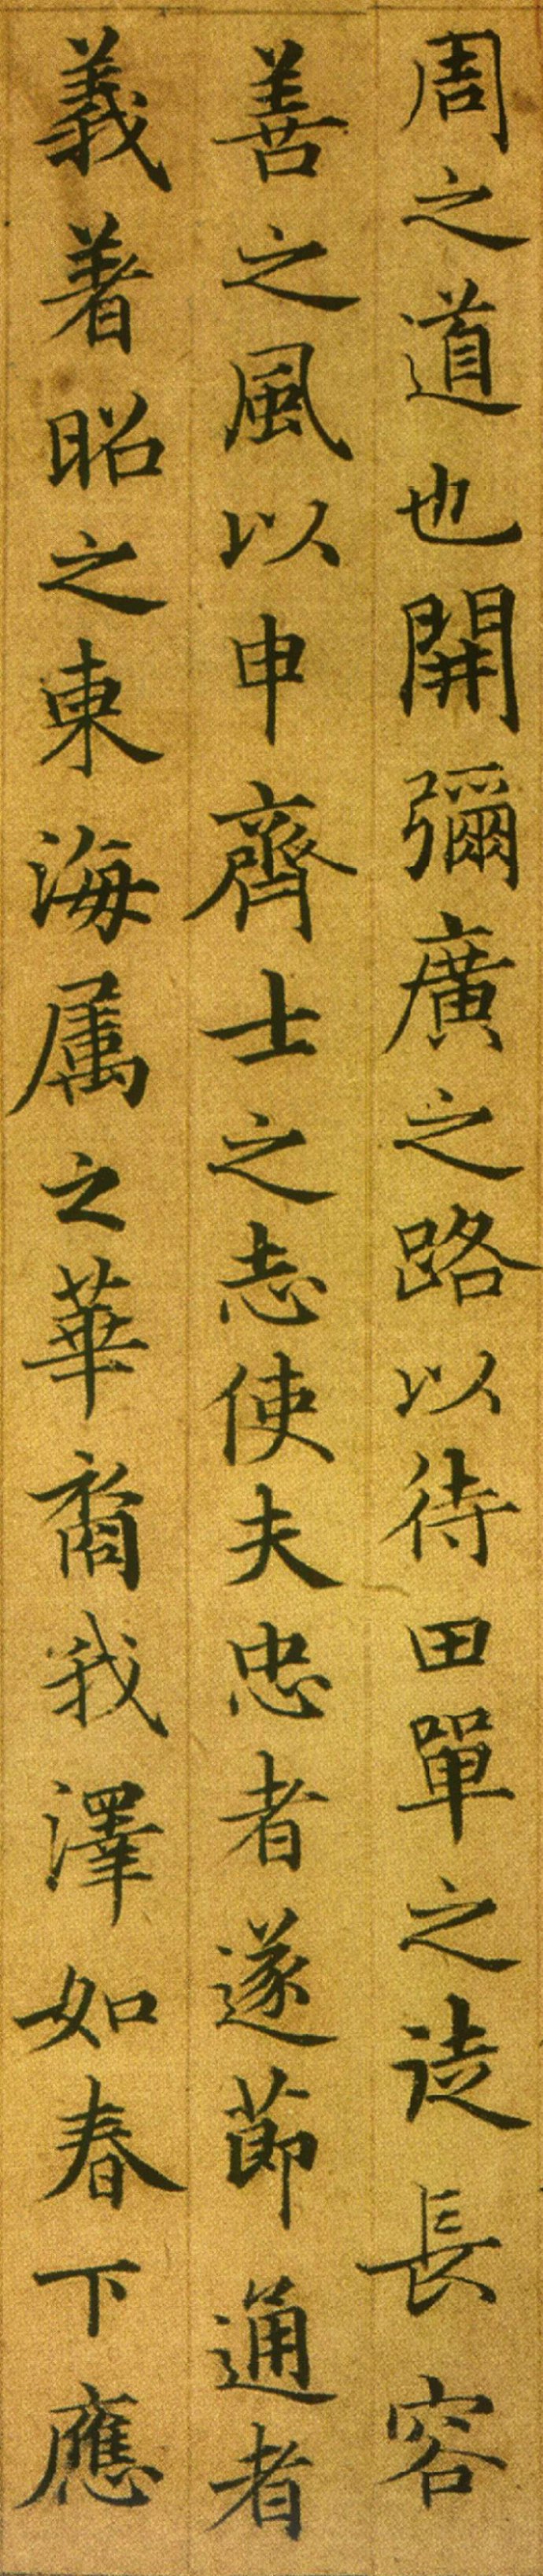 周之道也開彌廣之路以待田單之徒長容
善之風以申齊士之志使夫忠者遂節通者
義著昭之東海属之華裔我澤如春下應